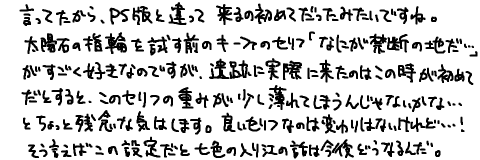 言ってたから、PS版と違って 来るの初めてだったみたいですね。
太陽石の指輪を試す前のキーファのセリフ「なにが禁断の地だ…」
がすごく好きなのですが、遺跡に実際に来たのはこの時が初めて
だとすると、このセリフの重みが少し薄れてしまうんじゃないかな…
とちょっと残念な気はします。良いセリフなのは変わりはないけれど…!
そう言えばこの設定だと七色の入り江の話は今後どうなるんだ。